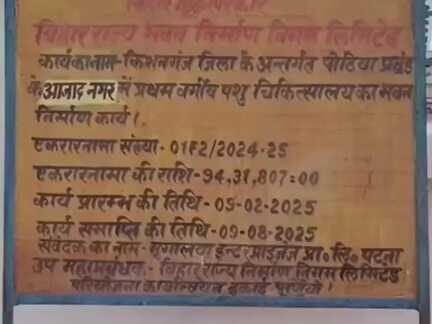 बिहार राज्य भवन निर्माण निगम लिमिटेड
कार्यकानाम-किशनगंज जिला के अन्तर्गत पोठिया प्रखंड
के आजाद नगर में प्रथम वर्गीय पशु चिकित्सालय का भवन
निर्माण कार्य।
एकरारनामा संख्या-01F2/2024-25
एकरारनामा की राशि-94,31,807=00
कार्य प्रारम्भ की तिथि-05-02-2025
कार्य समाप्ति की तिथि-09-08-2025
संवेदक का नाम- इन्टरप्राइजेज प्रा० लि० पटना
उप महाप्रबंधक-बिहार राज्य निर्माण निगम लिमिटेड
परियोजना कार्यान्वयन इकाई पूर्णियाँ।